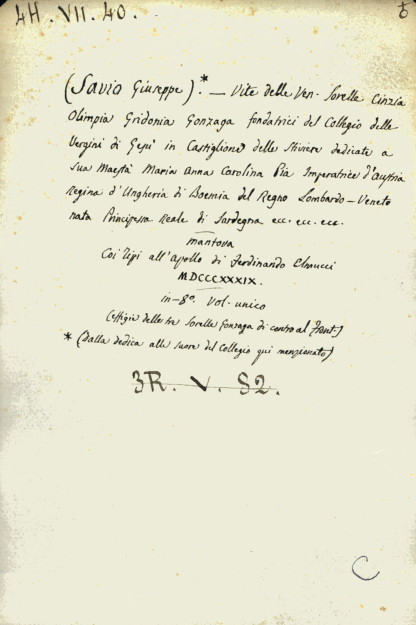 4H . VII . 40.
(Savio Giuseppe).* — Vite delle Ven. Sorelle Cinzia
Olimpia Gridonia Gonzaga fondatrici del Collegio delle
Vergini di Gesù in Castiglione delle Stiviere dedicate a
Sua Maestà Maria Anna Carolina Pia Imperatrice d'Austria
Regina d'Ungheria di Boemia del Regno Lombardo-Veneto
nata Principessa Reale di Sardegna ecc. ecc. ecc.
Mantova
Coi Tipi all'Apollo di Ferdinando Elmucci
MDCCCXXXIX.
in-8º. Vol. unico
(effigie delle tre Sorelle Gonzaga di contro al Front.)
* (Dalla dedica alle suore del Collegio qui menzionato)
3R. V. S2.
C